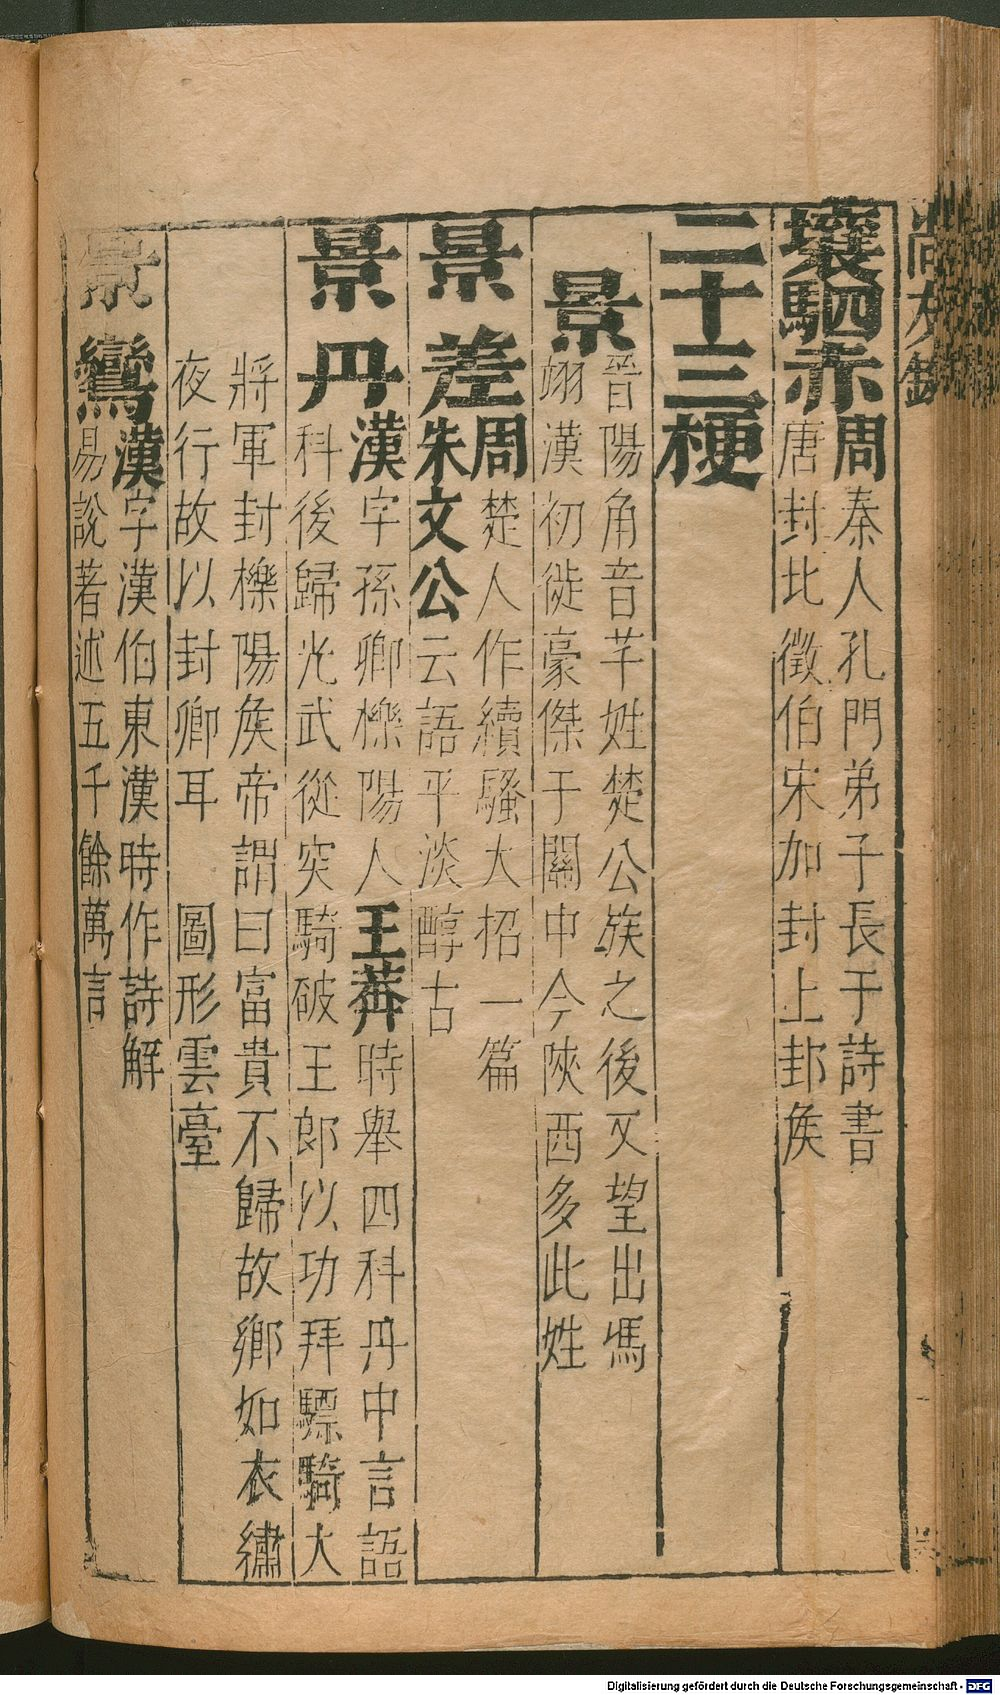 尚友錄
壤駟赤
周秦人孔門弟子長于詩書
唐封北徵伯宋加封上邽矦
二十三梗
景
晉陽角音芊姓楚公族之後又望出馮
翊漢初徙豪傑于關中今陝西多此姓
景差
周楚人作續騷大招一篇
朱文公云語平淡醇古
景丹
漢字孫卿櫟陽人王莽時舉四科丹中言語
科後歸光武從突騎破王郎以功拜驃騎大
將軍封櫟陽矦帝謂曰富貴不歸故鄉如衣繡
夜行故以封卿耳 圖形雲臺
景鸞
漢字漢伯東漢時作詩解
易說著述五千餘萬言
Digitalisierung gefördert durch die Deutsche Forschungsgemeinschaft - DFG